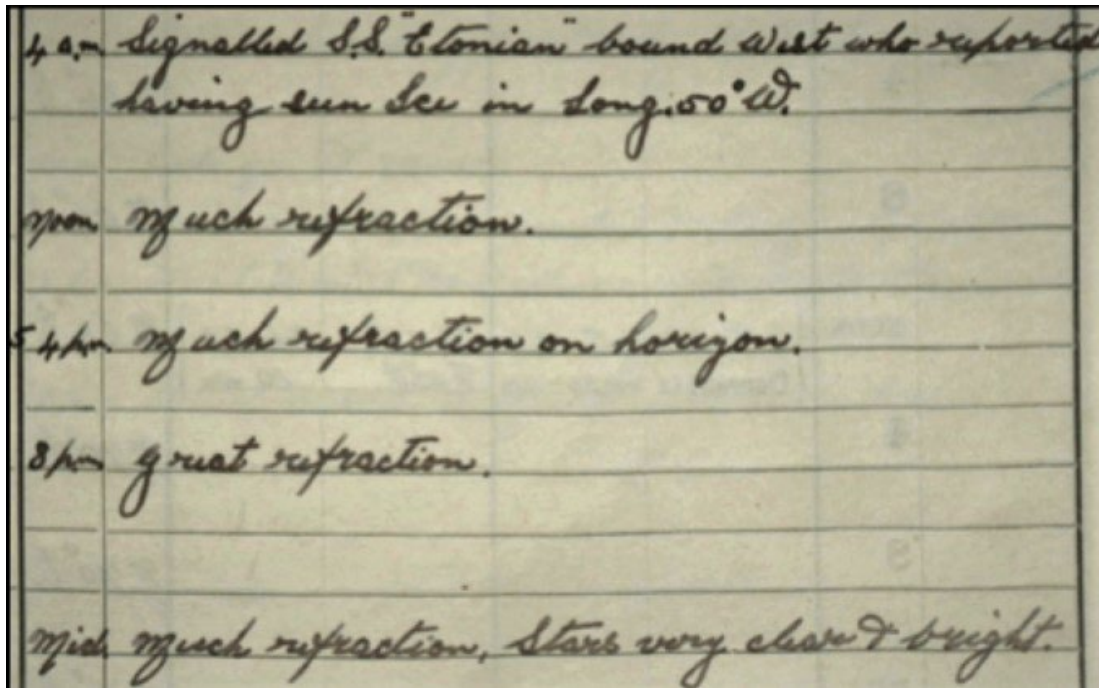 4 a.m. Signalled S.S. "Etonian" bound West who reported
having seen Ice in Long. 50° W.
Noon Much refraction.
4 p.m. Much refraction on horizon.
8 p.m. Great refraction.
Mid. Much refraction, Stars very clear & bright.